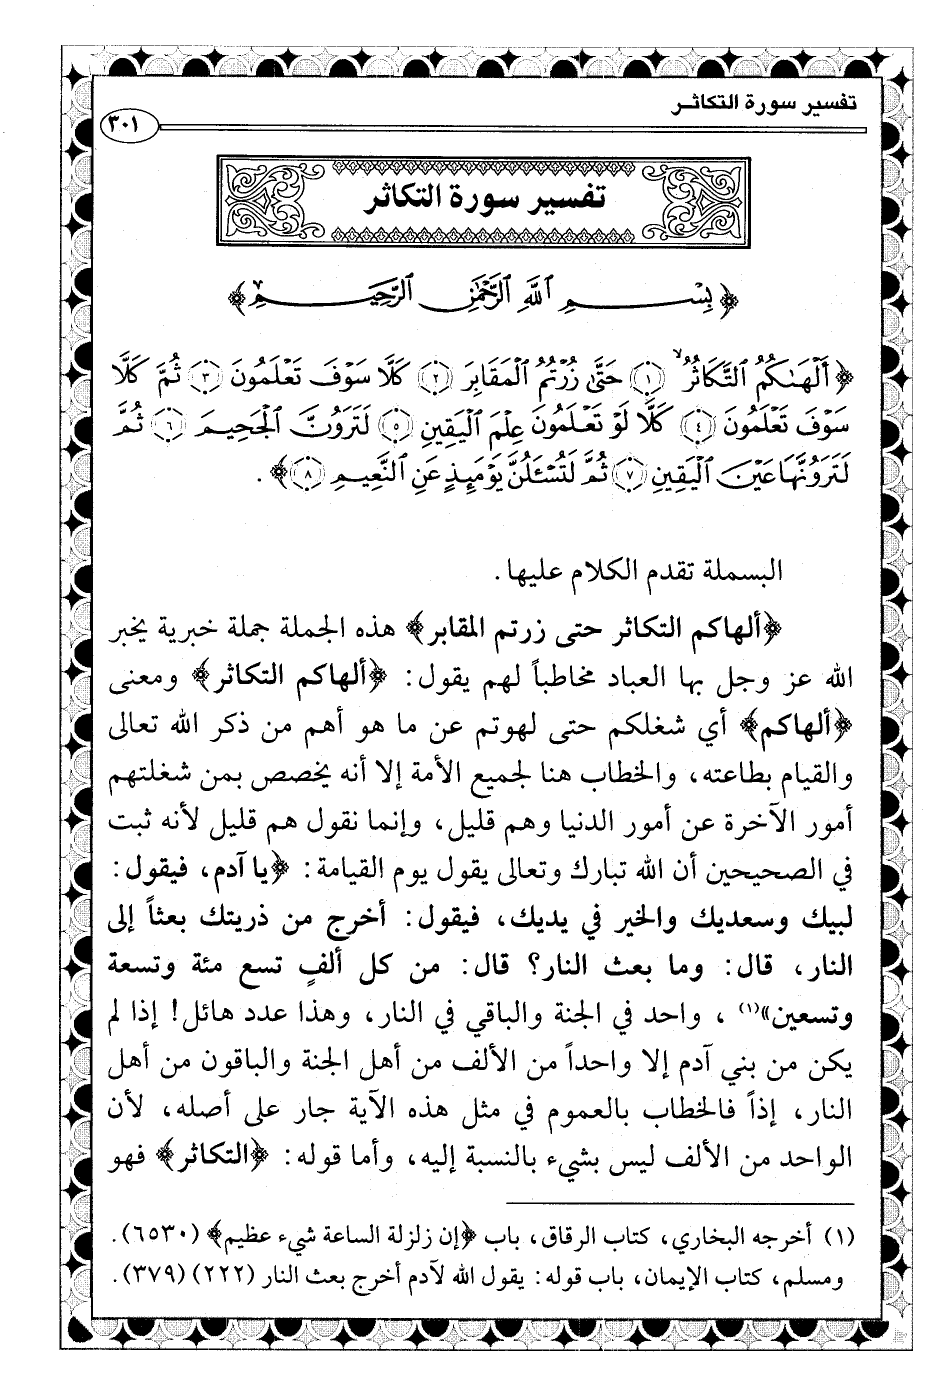 تفسير سورة التكاثـر
٣٠١
تفسير سورة التكاثر
﴿بِسْمِ ٱللَّهِ ٱلرَّحْمَٰنِ ٱلرَّحِيمِ﴾
﴿أَلْهَىٰكُمُ ٱلتَّكَاثُرُ ۙ ﴿١﴾ حَتَّىٰ زُرْتُمُ ٱلْمَقَابِرَ ﴿٢﴾ كَلَّا سَوْفَ تَعْلَمُونَ ﴿٣﴾ ثُمَّ كَلَّا
سَوْفَ تَعْلَمُونَ ﴿٤﴾ كَلَّا لَوْ تَعْلَمُونَ عِلْمَ ٱلْيَقِينِ ﴿٥﴾ لَتَرَوُنَّ ٱلْجَحِيمَ ﴿٦﴾ ثُمَّ
لَتَرَوُنَّهَا عَيْنَ ٱلْيَقِينِ ﴿٧﴾ ثُمَّ لَتُسْـَٔلُنَّ يَوْمَئِذٍ عَنِ ٱلنَّعِيمِ ﴿٨﴾﴾.
البسملة تقدم الكلام عليها.
﴿ألهاكم التكاثر حتى زرتم المقابر﴾ هذه الجملة جملة خبرية يخبر
الله عز وجل بها العباد مخاطباً لهم يقول: ﴿ألهاكم التكاثر﴾ ومعنى
﴿ألهاكم﴾ أي شغلكم حتى لهوتم عن ما هو أهم من ذكر الله تعالى
والقيام بطاعته، والخطاب هنا لجميع الأمة إلا أنه يخصص بمن شغلتهم
أمور الآخرة عن أمور الدنيا وهم قليل، وإنما نقول هم قليل لأنه ثبت
في الصحيحين أن الله تبارك وتعالى يقول يوم القيامة: ﴿يا آدم، فيقول:
لبيك وسعديك والخير في يديك، فيقول: أخرج من ذريتك بعثاً إلى
النار، قال: وما بعث النار؟ قال: من كل ألفٍ تسع مئة وتسعة
وتسعين»(١)، واحد في الجنة والباقي في النار، وهذا عدد هائل! إذا لم
يكن من بني آدم إلا واحداً من الألف من أهل الجنة والباقون من أهل
النار، إذاً فالخطاب بالعموم في مثل هذه الآية جار على أصله، لأن
الواحد من الألف ليس بشيء بالنسبة إليه، وأما قوله: ﴿التكاثر﴾ فهو
(١) أخرجه البخاري، كتاب الرقاق، باب ﴿إن زلزلة الساعة شيء عظيم﴾ (٦٥٣٠).
ومسلم، كتاب الإيمان، باب قوله: يقول الله لآدم أخرج بعث النار (٢٢٢) (٣٧٩).